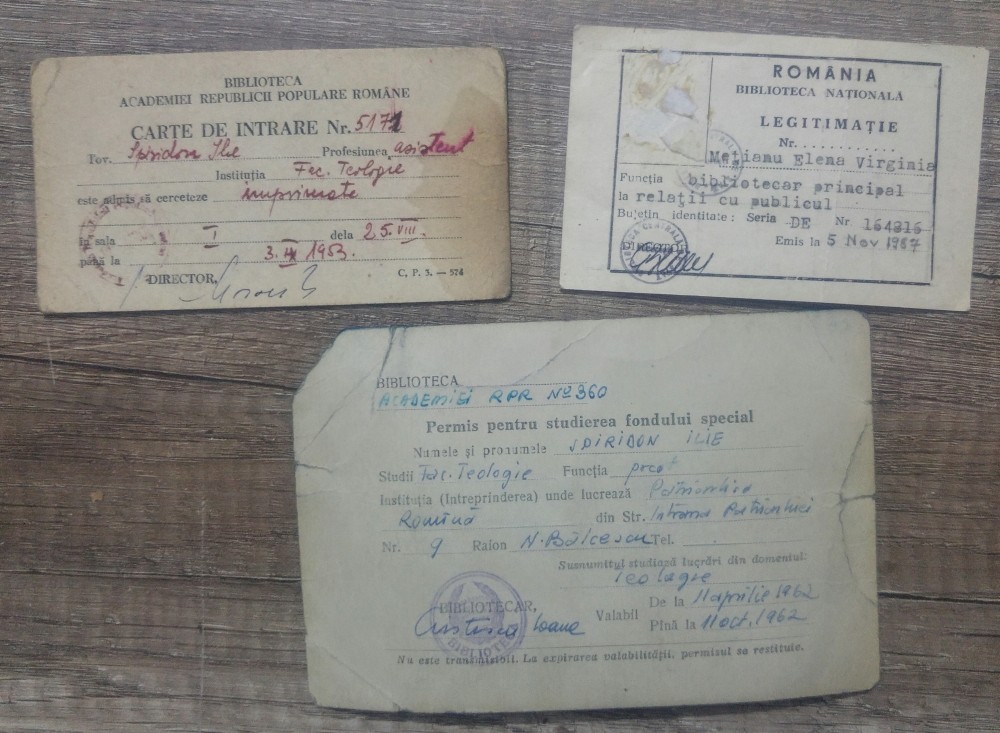 BIBLIOTECA
ACADEMIEI REPUBLICII POPULARE ROMÂNE
CARTE DE INTRARE Nr. 5171
Tov. Spiridon Ilie Profesiunea asistent
Instituția Fac. Teologie
este admis să cerceteze imprimate
în sala I dela 25.VIII.
până la 3.IX 1953.
DIRECTOR,
C. P. 3. — 574
ROMÂNIA
BIBLIOTECA NAȚIONALĂ
LEGITIMAȚIE
Nr. ..........
Mețianu Elena Virginia
Funcția bibliotecar principal
la relații cu publicul
Buletin identitate: Seria DE Nr 164816
Emis la 5 Nov 1967
DIRECTOR
BIBLIOTECA
ACADEMIEI RPR Nº 360
Permis pentru studierea fondului special
Numele și pronumele SPIRIDON ILIE
Studii Fac. Teologie Funcția preot
Instituția (Intreprinderea) unde lucrează Patriarhia
Romînă din Str. Intrarea Patriarhiei
Nr. 9 Raion N. Bălcescu Tel.
Susnumitul studiază lucrări din domeniul:
Teologie
BIBLIOTECAR, Valabil De la 11 aprilie 1962
Cristescu Ioana Pînă la 11 oct. 1962
Nu este transmisibil. La expirarea valabilității, permisul se restituie.